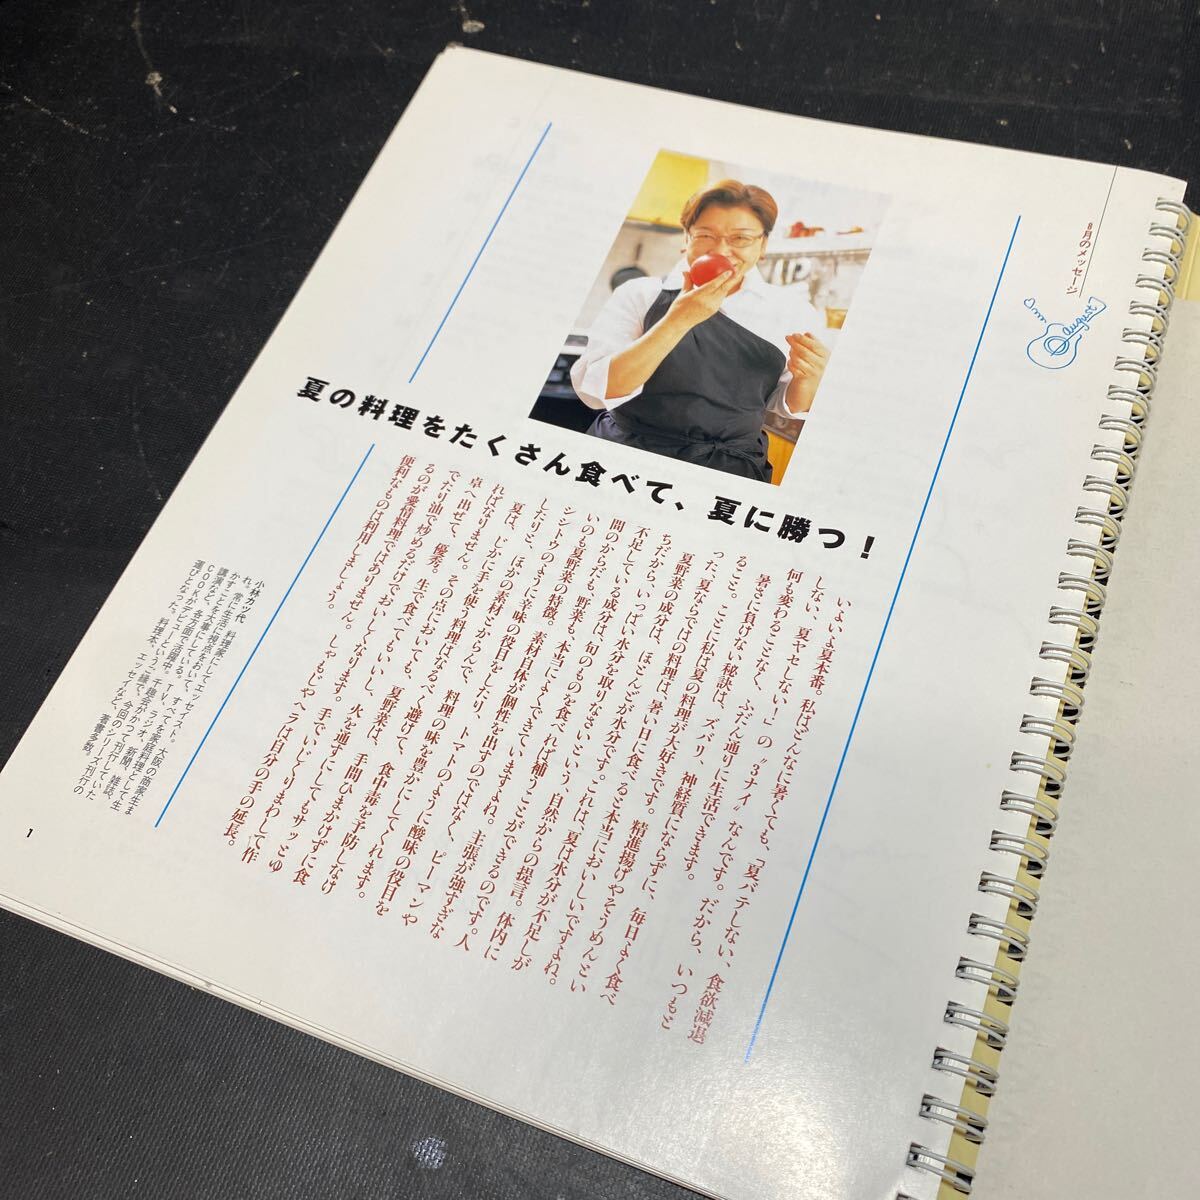 8月のメッセージ
august
夏の料理をたくさん食べて、夏に勝つ！
いよいよ夏本番。私はどんなに暑くても、「夏バテしない、食欲減退
しない、夏ヤセしない！」の〝3ナイ〟なんです。だから、いつもと
何も変わることなく、ふだん通りに生活できます。
暑さに負けない秘訣は、ズバリ、神経質にならずに、毎日よく食べ
ること。ここに私は夏の料理が大好きです。精進揚げやそうめんとい
った、夏ならではの料理は、暑い日に食べると本当においしいですよね。
夏野菜の成分は、ほとんどが水分です。これは、夏は水分が不足しが
ちだから、いっぱい水分を取りなさいという、自然からの提言。体内に
不足している成分は、旬のものを食べれば補うことができるのです。人
間のからだも、野菜も、本当によくできていますよね。
いのも夏野菜の特徴。素材自体が個性を出すのではなく、ピーマンや
シシトウのように辛味の役目をしたり、トマトのように酸味の役目を
したりと、ほかの素材とからんで、料理の味を豊かにしてくれます。
夏は、じかに手を使う料理はなるべく避けて、食中毒を予防しなけ
ればなりません。その点においても、夏野菜は、手間ひまかけずに食
卓へ出せて、優秀。生で食べてもいいし、火を通すにしてもサッとゆ
でたり油で炒めるだけでおいしくなります。手でいじくりまわして作
るのが愛情料理ではありません。しゃもじやヘラは自分の手の延長。
便利なものは利用しましょう。
小林カツ代 料理家にしてエッセイスト。大阪の商家生ま
れ。常に生活に視点をおいて、すべてを家庭料理として生
かすことを大事にしている。TV、ラジオ、新聞、雑誌、
講演など、各方面で活躍中。千趣会がかつて刊行していた
COOKがデビューというご縁で、今回のシリーズ刊行の
運びとなった。料理本、エッセイなど、著書多数。
1